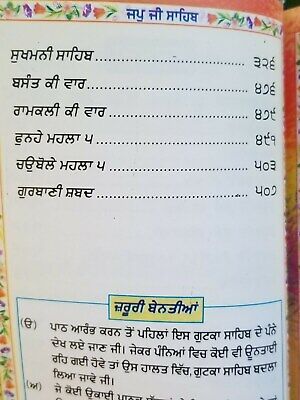 ਜਪੁ ਜੀ ਸਾਹਿਬ
ਸੁਖਮਨੀ ਸਾਹਿਬ ੩੨੬
ਬਸੰਤ ਕੀ ਵਾਰ ੪੭੬
ਰਾਮਕਲੀ ਕੀ ਵਾਰ ੪੭੯
ਫੁਨਹੇ ਮਹਲਾ ੫ ੪੯੧
ਚਉਬੋਲੇ ਮਹਲਾ ੫ ੫੦੩
ਗੁਰਬਾਣੀ ਸ਼ਬਦ ੫੦੭
ਜ਼ਰੂਰੀ ਬੇਨਤੀਆਂ
(ੳ) ਪਾਠ ਆਰੰਭ ਕਰਨ ਤੋਂ ਪਹਿਲਾਂ ਇਸ ਗੁਟਕਾ ਸਾਹਿਬ ਦੇ ਪੰਨੇ
ਦੇਖ ਲਏ ਜਾਣ ਜੀ। ਜੇਕਰ ਪੰਨਿਆਂ ਵਿਚ ਕੋਈ ਵੀ ਊਨਤਾਈ
ਰਹਿ ਗਈ ਹੋਵੇ ਤਾਂ ਉਸ ਹਾਲਤ ਵਿੱਚ, ਗੁਟਕਾ ਸਾਹਿਬ ਬਦਲਾ
ਲਿਆ ਜਾਵੇ ਜੀ।
(ਅ) ਜੇ ਕੋਈ ਉਕਾਈ